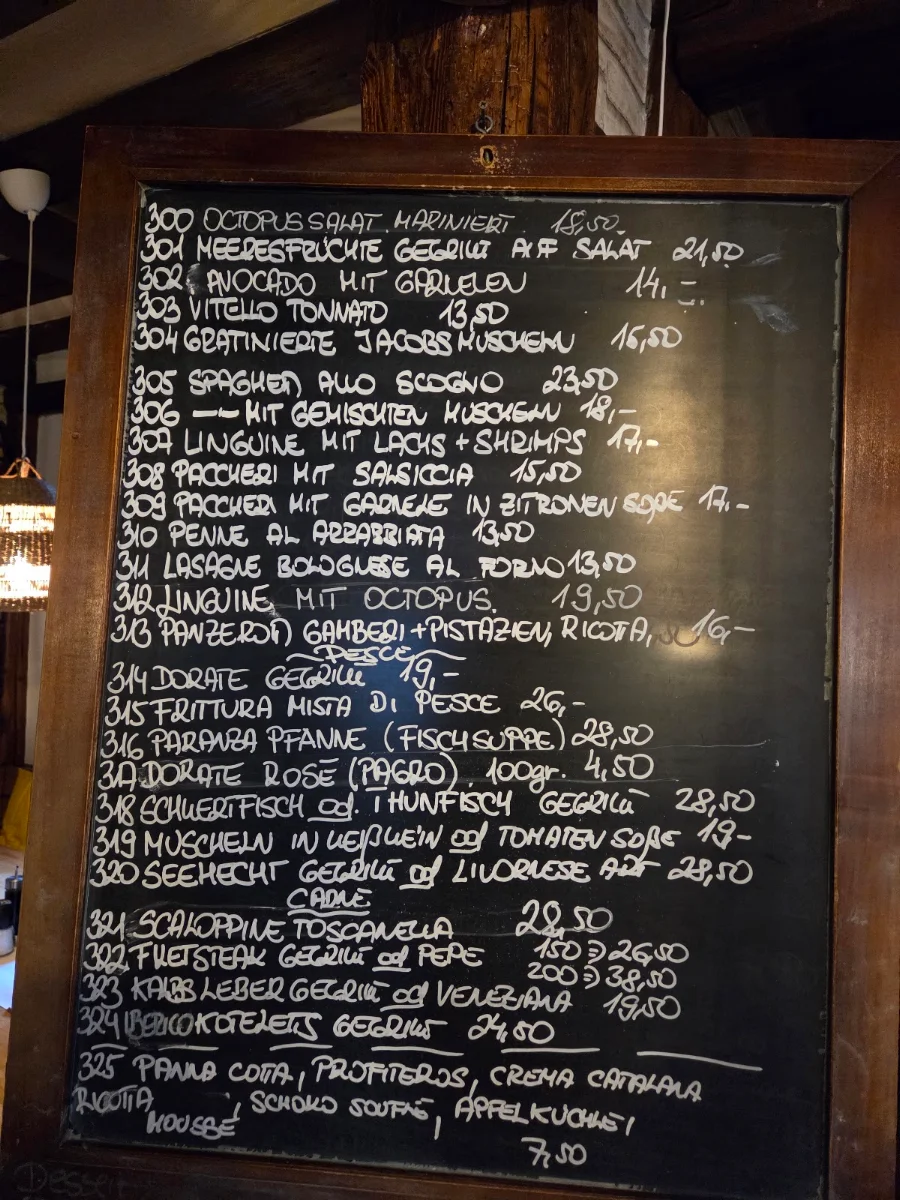 300 OCTOPUS SALAT MARINIERT 18,50.
301 MEERESFRÜCHTE GEGRILLT AUF SALAT 21,50
302 AVOCADO MIT GARNELEN 14.-
303 VITELLO TONNATO 13,50
304 GRATINIERTE JACOBSMUSCHELN 16,50
305 SPAGHETTI ALLO SCOGLIO 23,50
306 —— MIT GEMISCHTEN MUSCHELN 18,-
307 LINGUINE MIT LACHS + SHRIMPS 17,-
308 PACCHERI MIT SALSICCIA 15,50
309 PACCHERI MIT GARNELE IN ZITRONENSOßE 17,-
310 PENNE AL ARRABBIATA 13,50
311 LASAGNE BOLOGNESE AL FORNO 13,50
312 LINGUINE MIT OCTOPUS. 19,50
313 PANZEROTTI GAMBERI + PISTAZIEN, RICOTTA, 16,-
PESCE
314 DORATE GEGRILLT 19,-
315 FRITTURA MISTA DI PESCE 26,-
316 PARANZA PFANNE (FISCHSUPPE) 28,50
317 DORATE ROSÉ (PAGRO) 100gr. 4,50
318 SCHWERTFISCH od. THUNFISCH GEGRILLT 28,50
319 MUSCHELN IN WEIßWEIN od TOMATENSOßE 19-
320 SEEHECHT GEGRILLT od LIVORNESE ART 28,50
CARNE
321 SCALOPPINE TOSCANELLA 28,50
322 FILETSTEAK GEGRILLT od PEPE 150 => 26,50
200 => 38,50
323 KALBSLEBER GEGRILLT od VENEZIANA 19,50
324 IBERICO KOTELETTS GEGRILLT 24,50
325 PANNA COTTA, PROFITEROS, CREMA CATALANA
RICOTTA , SCHOKO SOUFFLÉ, APFELKUCHLE,
MOUSSE
7,50
Desse